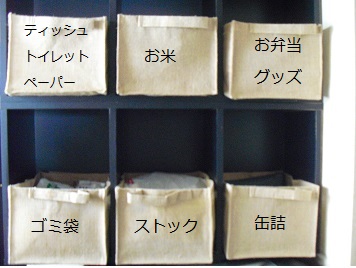 ティッシュ
トイレット
ペーパー
お米
お弁当
グッズ
ゴミ袋
ストック
缶詰